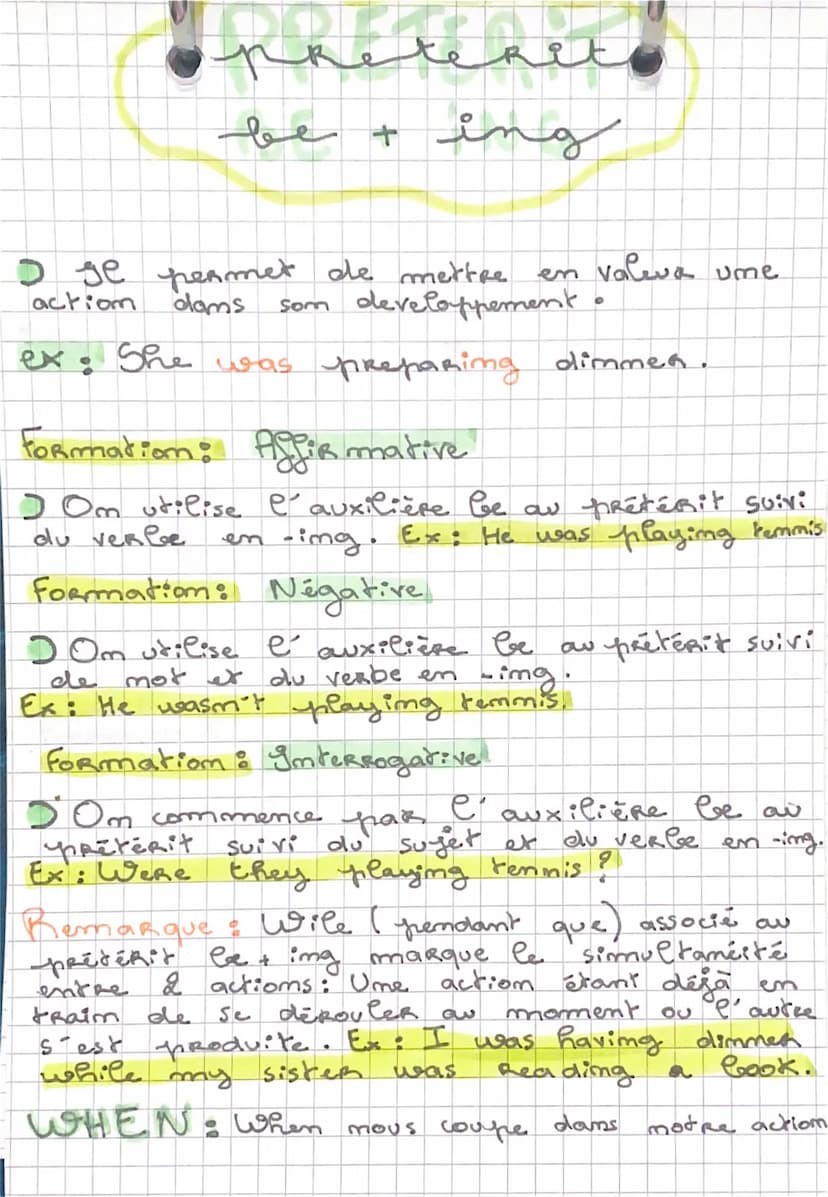 PRETERIT
be + ing
Il permet de mettre en valeur une
action dans son developpement.
ex : She was preparing dinner.
Formation : Affirmative
On utilise l'auxilière be au prétérit suivi
du verbe en -ing. Ex : He was playing tennis
Formation : Négative
On utilise l'auxilière be au prétérit suivi
de not et du verbe en -ing.
Ex : He wasn't playing tennis.
Formation : Interrogative
On commence par l'auxilière be au
prétérit suivi du sujet et du verbe en -ing.
Ex : Were they playing tennis ?
Remarque : Wile (pendant que) associé au
prétérit be + ing marque le simultanéité
entre 2 actions : Une action étant déjà en
train de se dérouler au moment ou l'autre
s'est produite. Ex : I was having dinner
while my sister was reading a book.
WHEN : When nous coupe dans notre action